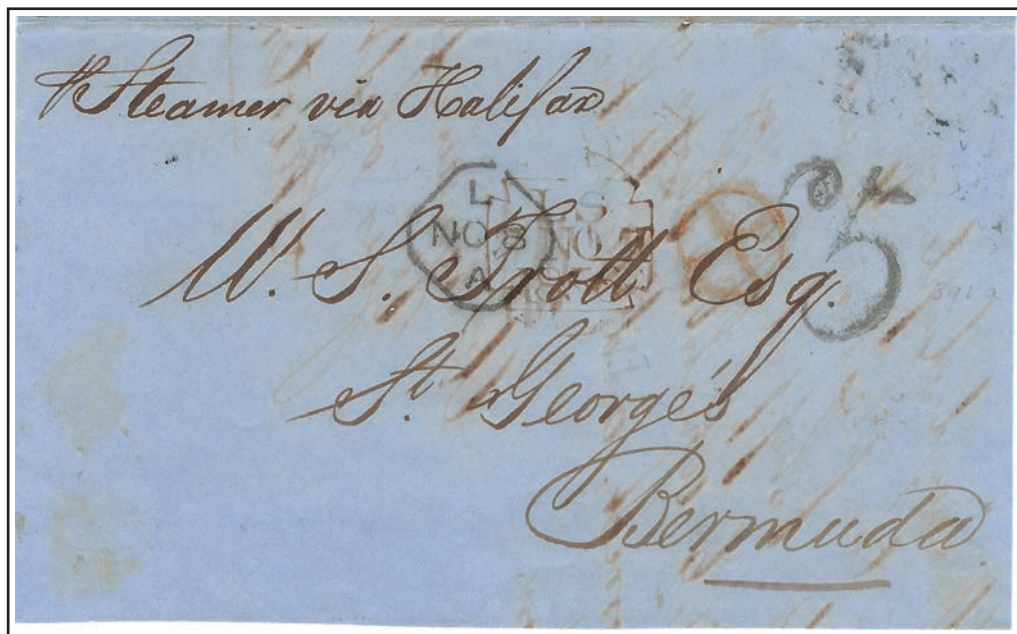 pr Steamer via Halifax
L
NO 8
A
L S
NO 7
5
W. S. Trott Esq.
St. George's
Bermuda